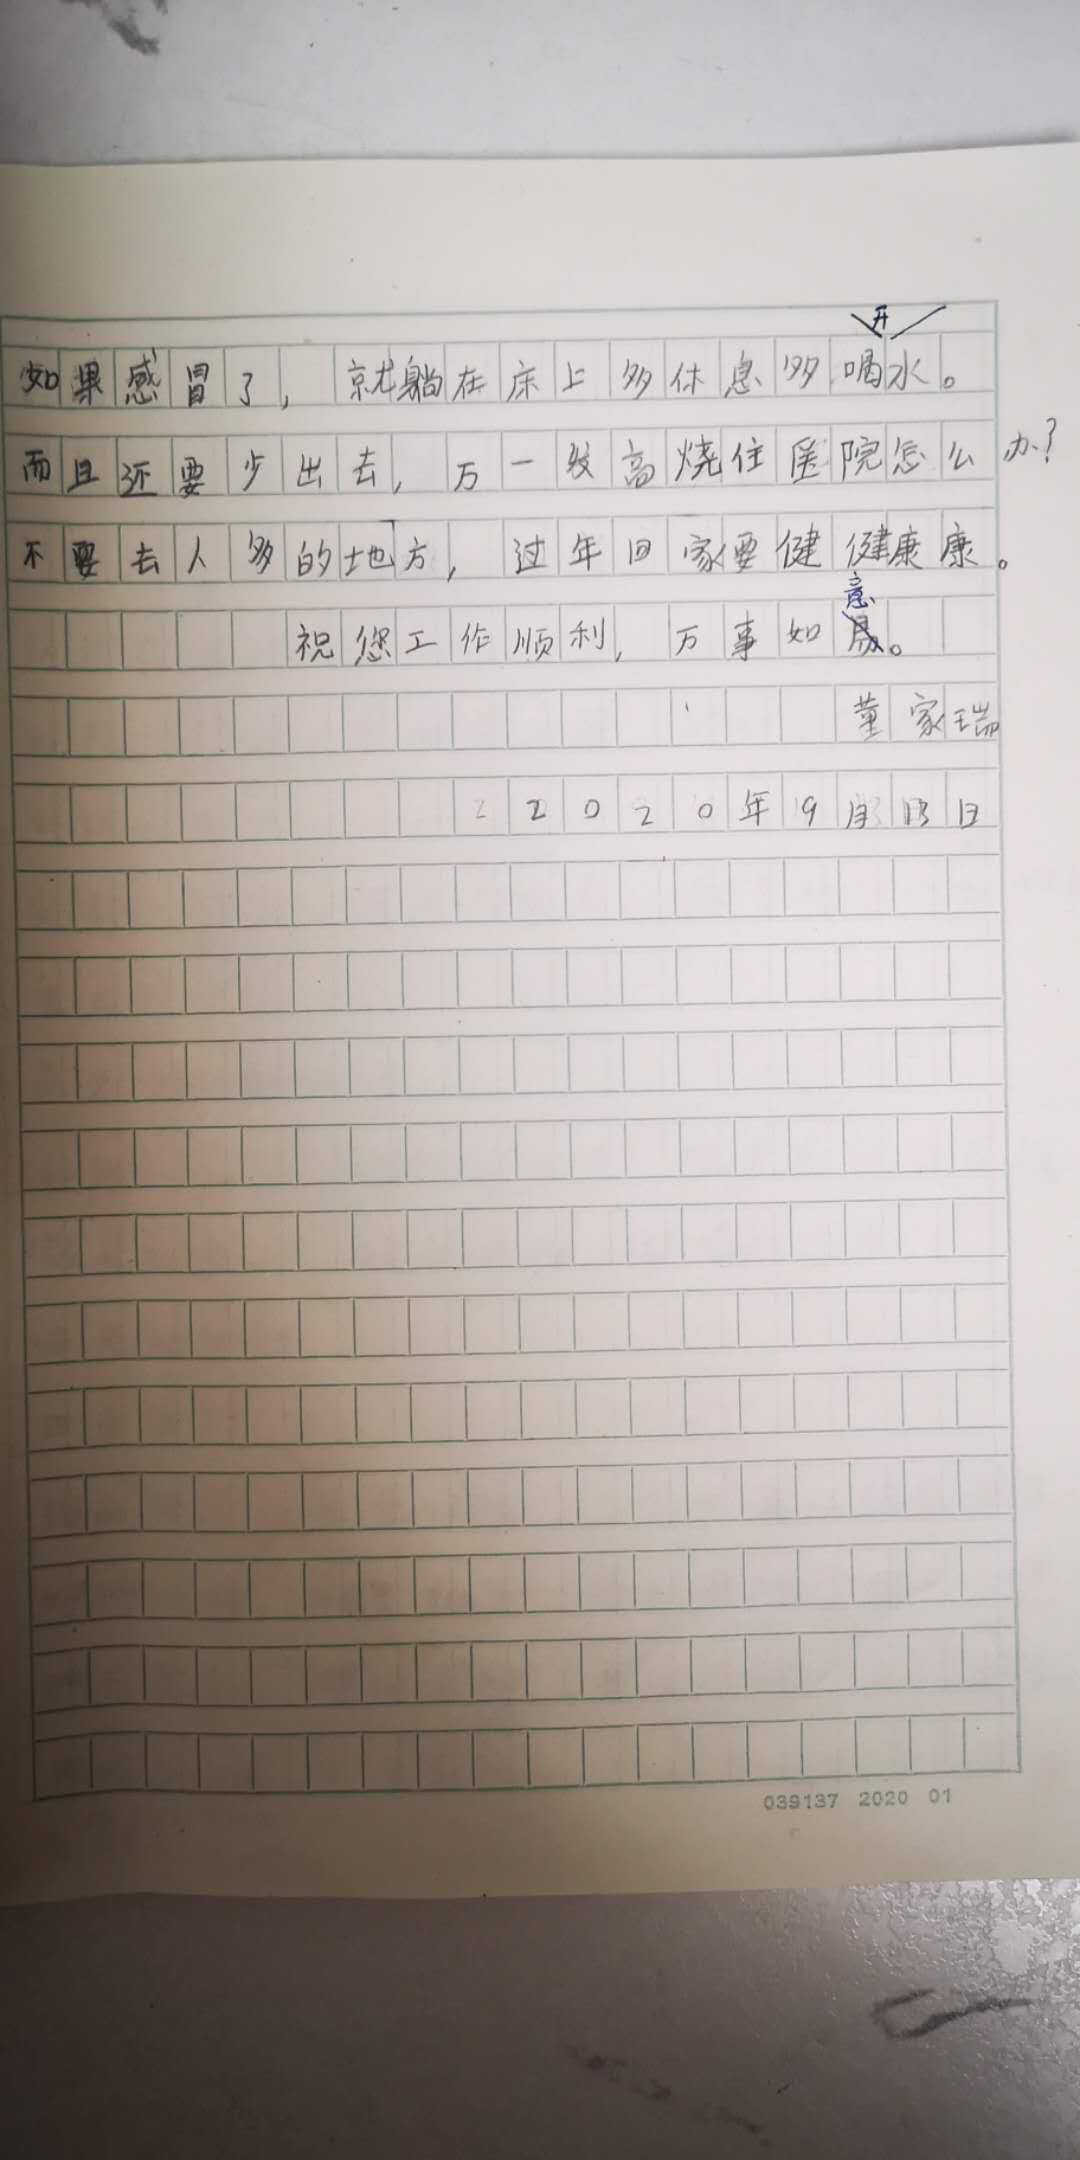 开
如果感冒了，就躺在床上多休息多喝水。
而且还要少出去，万一发高烧住医院怎么办？
不要去人多的地方，过年回家要健健康康。
意
祝您工作顺利，万事如。
董家瑞
2020年9月13日
039137 2020 01